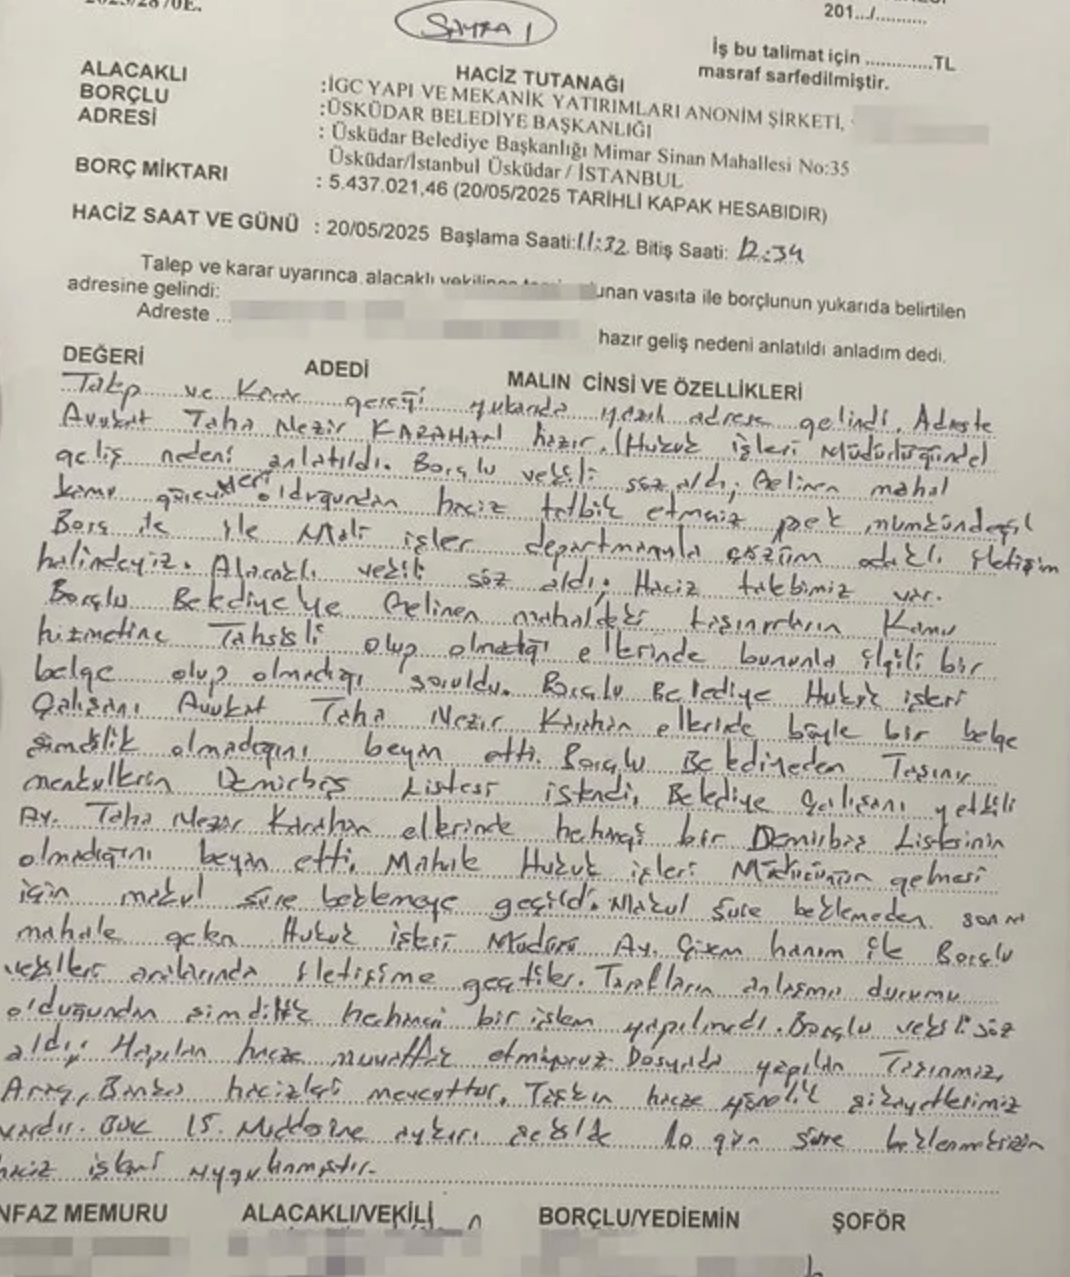 SAYFA 1
201.../..........
İş bu talimat için .............TL
masraf sarfedilmiştir.
HACİZ TUTANAĞI
ALACAKLI :İGC YAPI VE MEKANİK YATIRIMLARI ANONİM ŞİRKETİ,
BORÇLU :ÜSKÜDAR BELEDİYE BAŞKANLIĞI
ADRESİ : Üsküdar Belediye Başkanlığı Mimar Sinan Mahallesi No:35
Üsküdar/İstanbul Üsküdar / İSTANBUL
BORÇ MİKTARI : 5.437.021,46 (20/05/2025 TARİHLİ KAPAK HESABIDIR)
HACİZ SAAT VE GÜNÜ : 20/05/2025 Başlama Saati: Bitiş Saati: 12:34
Talep ve karar uyarınca alacaklı vekilince unan vasıta ile borçlunun yukarıda belirtilen
adresine gelindi:
Adreste ...
hazır geliş nedeni anlatıldı anladım dedi.
DEĞERİ ADEDİ MALIN CİNSİ VE ÖZELLİKLERİ
Talep ve Karar gereği yukarıda yazılı adrese gelindi. Adreste
Avukat Taha Nezir KARAHAN hazır. (Hukuk işleri Müdürlüğünde)
geliş nedeni anlatıldı. Borçlu vekili söz aldı; Gelinen mahal
kamu yeri olduğundan haciz tatbik etmeniz pek mümkün değil
Borç ile Mali işler departmanıyla çözüm odaklı iletişim
halindeyiz. Alacaklı vekili söz aldı; Haciz talebimiz var.
Borçlu Belediyeye Gelinen mahaldeki taşınırların Kamu
hizmetine Tahsisli olup olmadığı ellerinde bununla ilgili bir
belge olup olmadığı soruldu. Borçlu Belediye Hukuk işleri
Çalışanı Avukat Taha Nezir Karahan ellerinde böyle bir belge
şimdilik olmadığını beyan etti. Borçlu Belediyeden Taşınır
menkullerin Demirbaş Listesi istendi, Belediye Çalışanı yetkili
Av. Taha Nezir Karahan ellerinde herhangi bir Demirbaş Listesinin
olmadığını beyan etti, Mahale Hukuk işleri Müdürünün gelmesi
için makul süre beklemeye geçildi. Makul süre beklemeden sonra
mahale gelen Hukuk işleri Müdürü Av. Çisem hanım ile Borçlu
vekilleri aralarında iletişime geçtiler. Tarafların anlaşma durumu
olduğundan şimdilik herhangi bir işlem yapılmadı. Borçlu vekili söz
aldı; Yapılan hacze muvaffakat etmiyoruz. Dosyada yapılan Taşınmaz,
Araç, Banka hacizleri mevcuttur. Taşkın hacze yönelik şikayetlerimiz
vardır. 15. Maddesine aykırı şekilde 10 gün süre beklenmeksizin
haciz işlemi uygulanmıştır.
NFAZ MEMURU ALACAKLI/VEKİLİ BORÇLU/YEDİEMİN ŞOFÖR